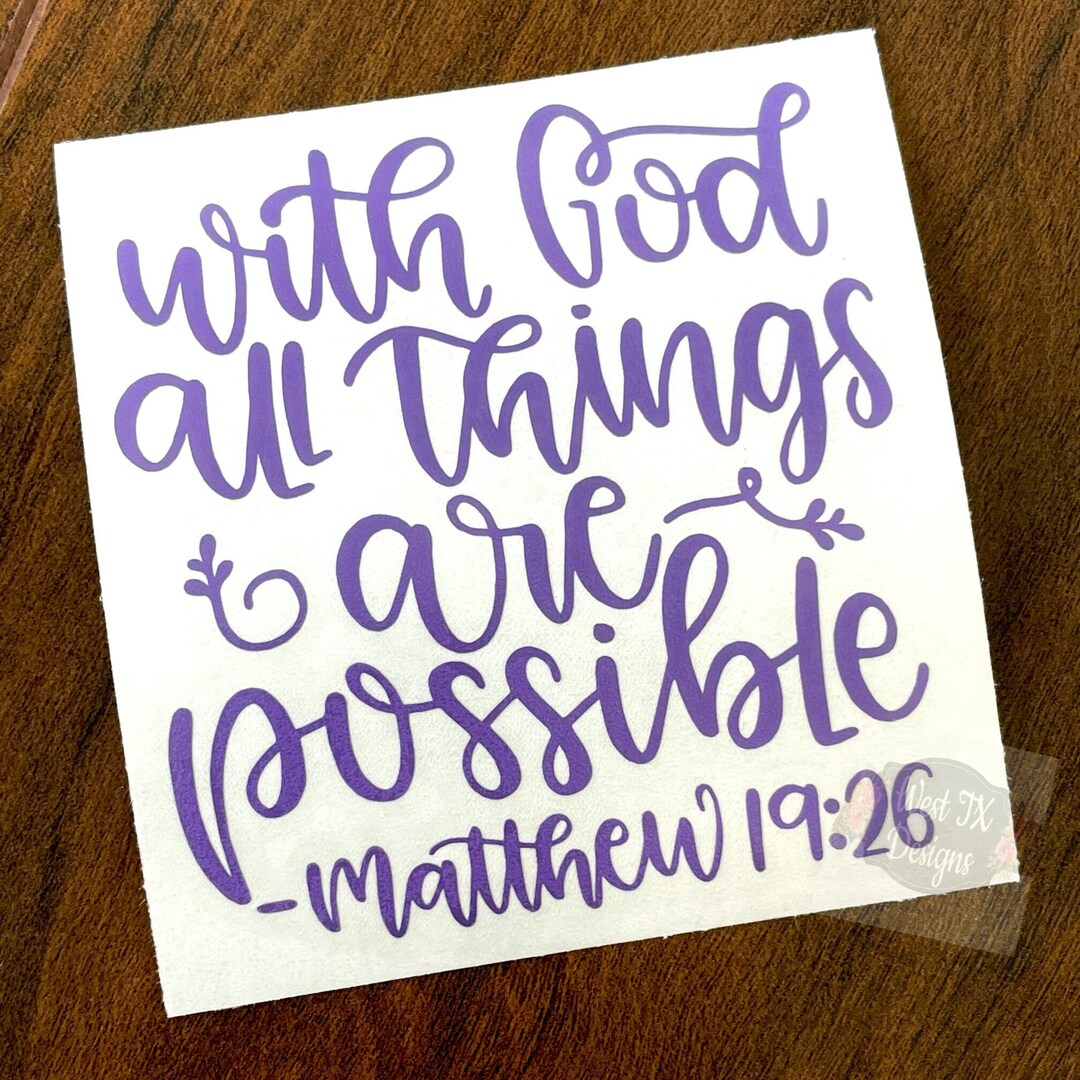 with God
all things
are
possible
-matthew 19:26
West TX
Designs